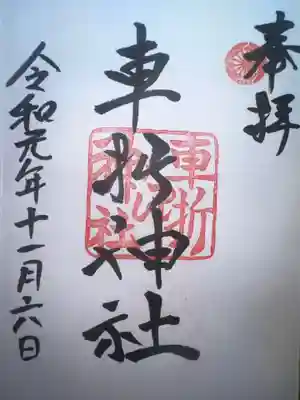 奉拝
車折神社
車折神社
令和元年十一月六日